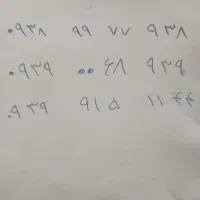 ۰۹۳۸ ۹۹ ۷۷ ۹۳۸
۰۹۳۹ ۰۰ ۶۸ ۹۳۹
۰۹۳۹ ۹۱۵ ۱۱ ۴۴